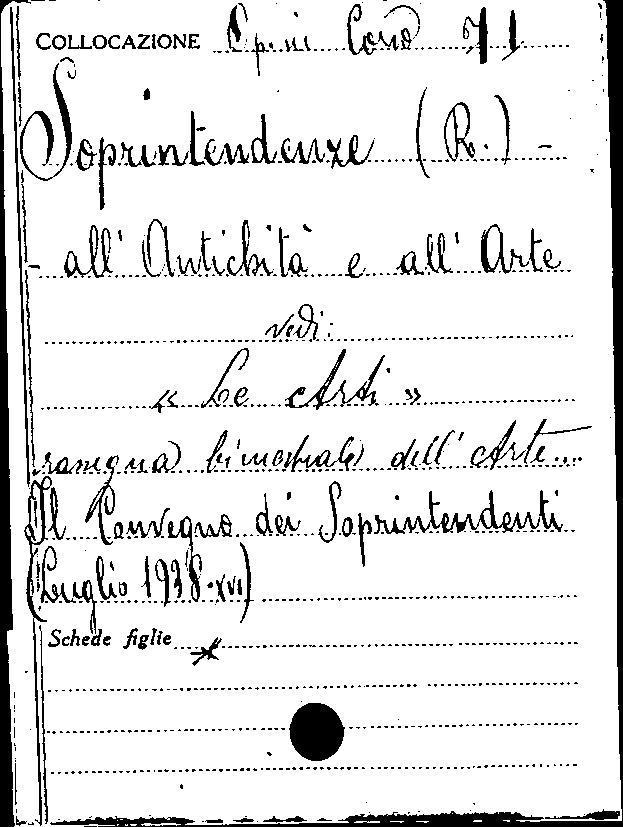 COLLOCAZIONE 71
Soprintendenze (R.) -
- all' Antichità e all' Arte
vedi:
« Le Arti »
rassegna bimestrale dell' Arte...
Il Convegno dei Soprintendenti
(Luglio 1938-XVI)
Schede figlie